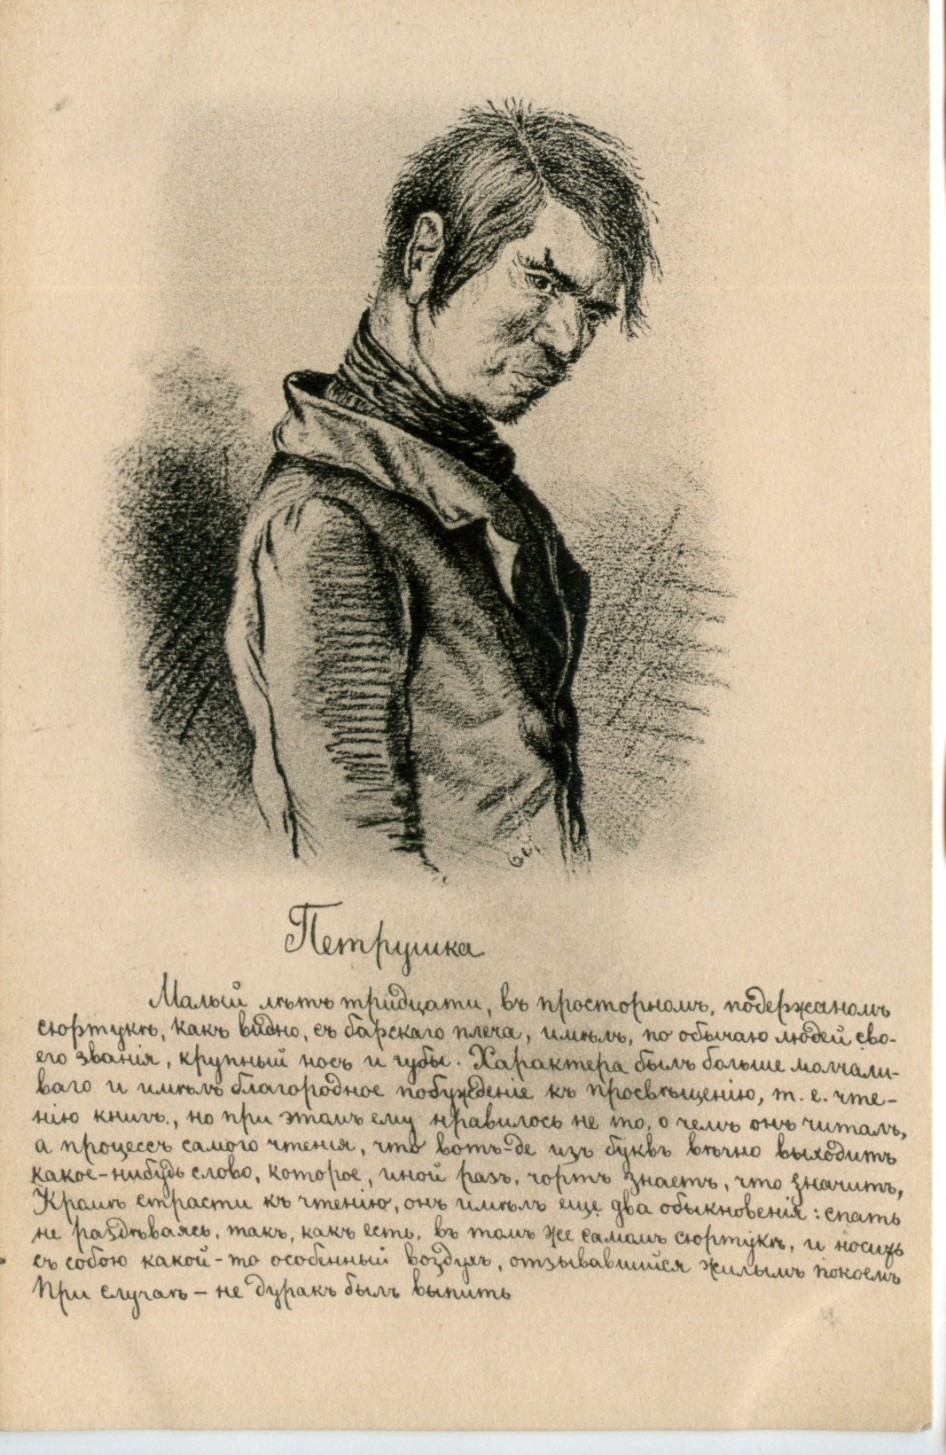 Петрушка
Малый лѣтъ тридцати, въ просторномъ, подержаномъ
сюртукѣ, какъ видно, съ барскаго плеча, имѣлъ, по обычаю людей сво-
его званія, крупный носъ и губы. Характера былъ больше молчали-
ваго и имѣлъ благородное побужденіе къ просвѣщенію, т. е. чте-
нію книгъ, но при этомъ ему нравилось не то, о чемъ онъ читалъ,
а процессъ самого чтенія, что вотъ-де изъ буквъ вѣчно выходитъ
какое-нибудь слово, которое, иной разъ, чортъ знаетъ, что значитъ,
Кромѣ страсти къ чтенію, онъ имѣлъ еще два обыкновенія: спать
не раздѣваясь, такъ, какъ есть, въ томъ же самомъ сюртукѣ, и носить
съ собою какой-то особенный воздухъ, отзывавшийся жилымъ покоемъ
При случаѣ – не дуракъ былъ выпить